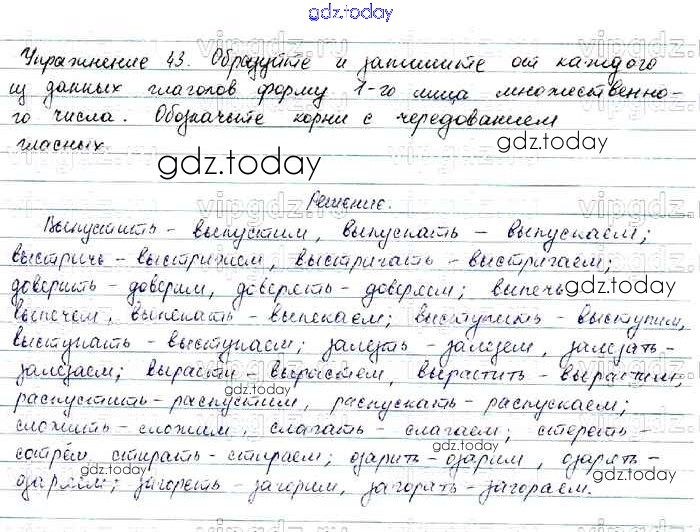 gdz.today
Упражнение 43. Образуйте и запишите от каждого
из данных глаголов форму 1-го лица множественно-
го числа. Обозначьте корни с чередованием
гласных.
gdz.today
gdz.today
Решение.
Выпустить - выпустим, выпускать - выпускаем;
выстричь - выстрижем, выстригать - выстригаем;
gdz.today
доверить - доверим, доверять - доверяем; выпечь -
выпечем, выпекать - выпекаем; выступить - выступим,
выступать - выступаем; залезть - залезем, залезать -
залезаем; вырасти - вырастем, вырастить - вырастим;
gdz.today
распустить - распустим, распускать - распускаем;
сложить - сложим, слагать - слагаем; стереть -
gdz.today
сотрём, стирать - стираем; озарить - озарим, озарять -
gdz.today
озаряем; загореть - загорим, загорать - загораем.